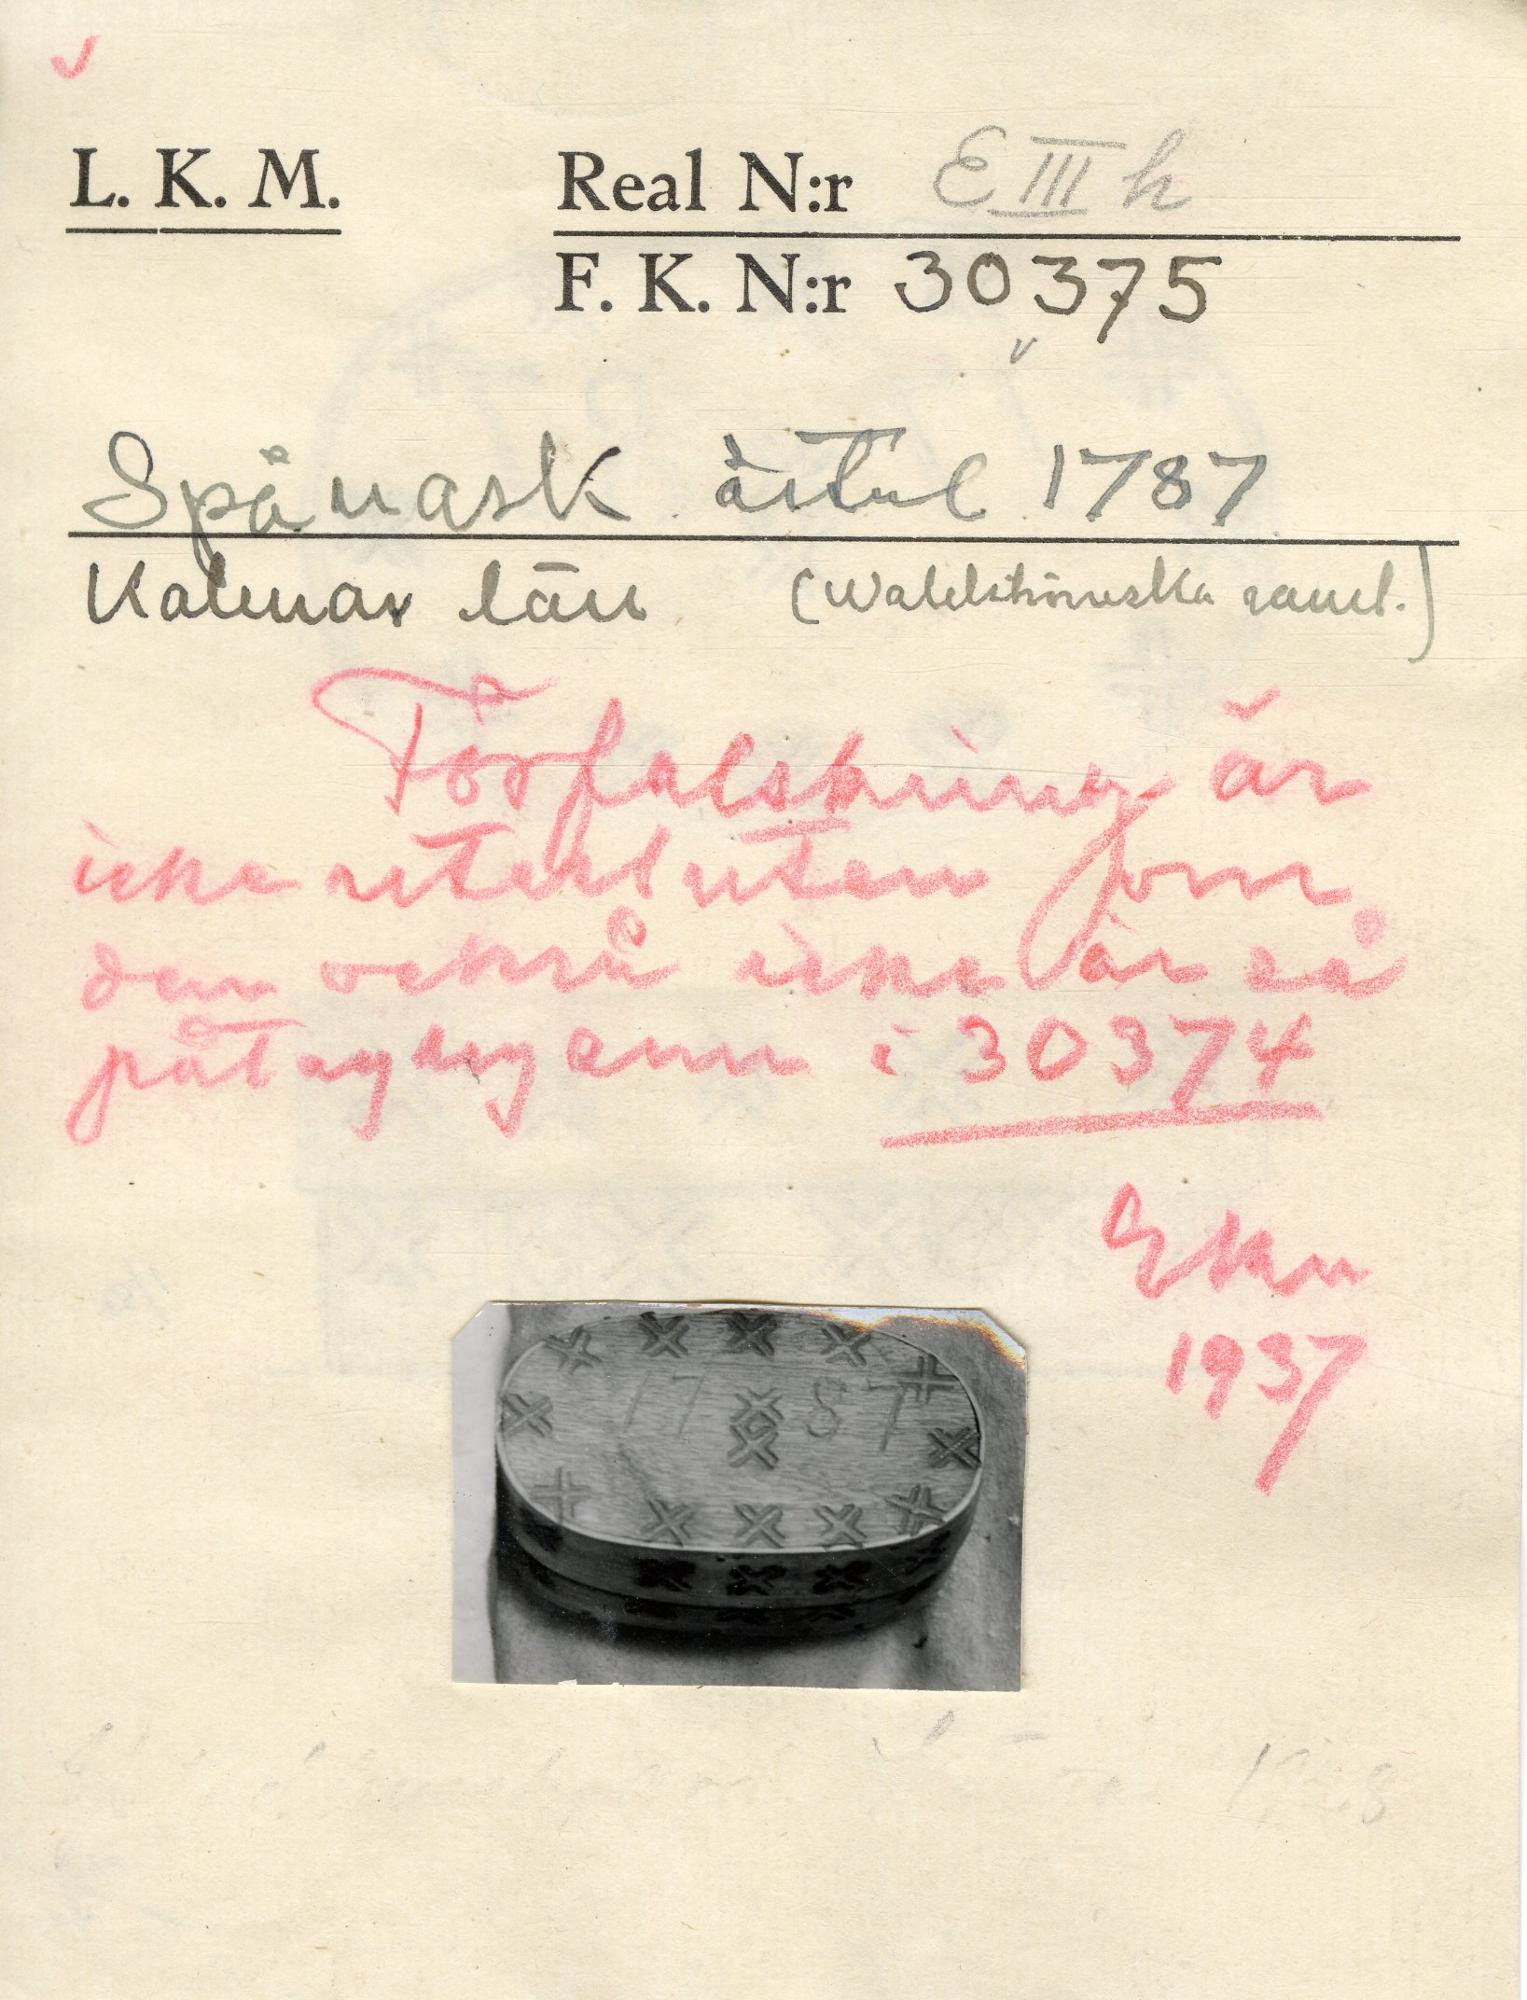 L. K. M.
Real N:r E III h
F. K. N:r 30375
Spånask årtal 1787
Kalmar län (Wahlströmska saml.)
Förfalskning är
icke utesluten fom
den också icke är så
påtaglig som i 30374
1937
17 87